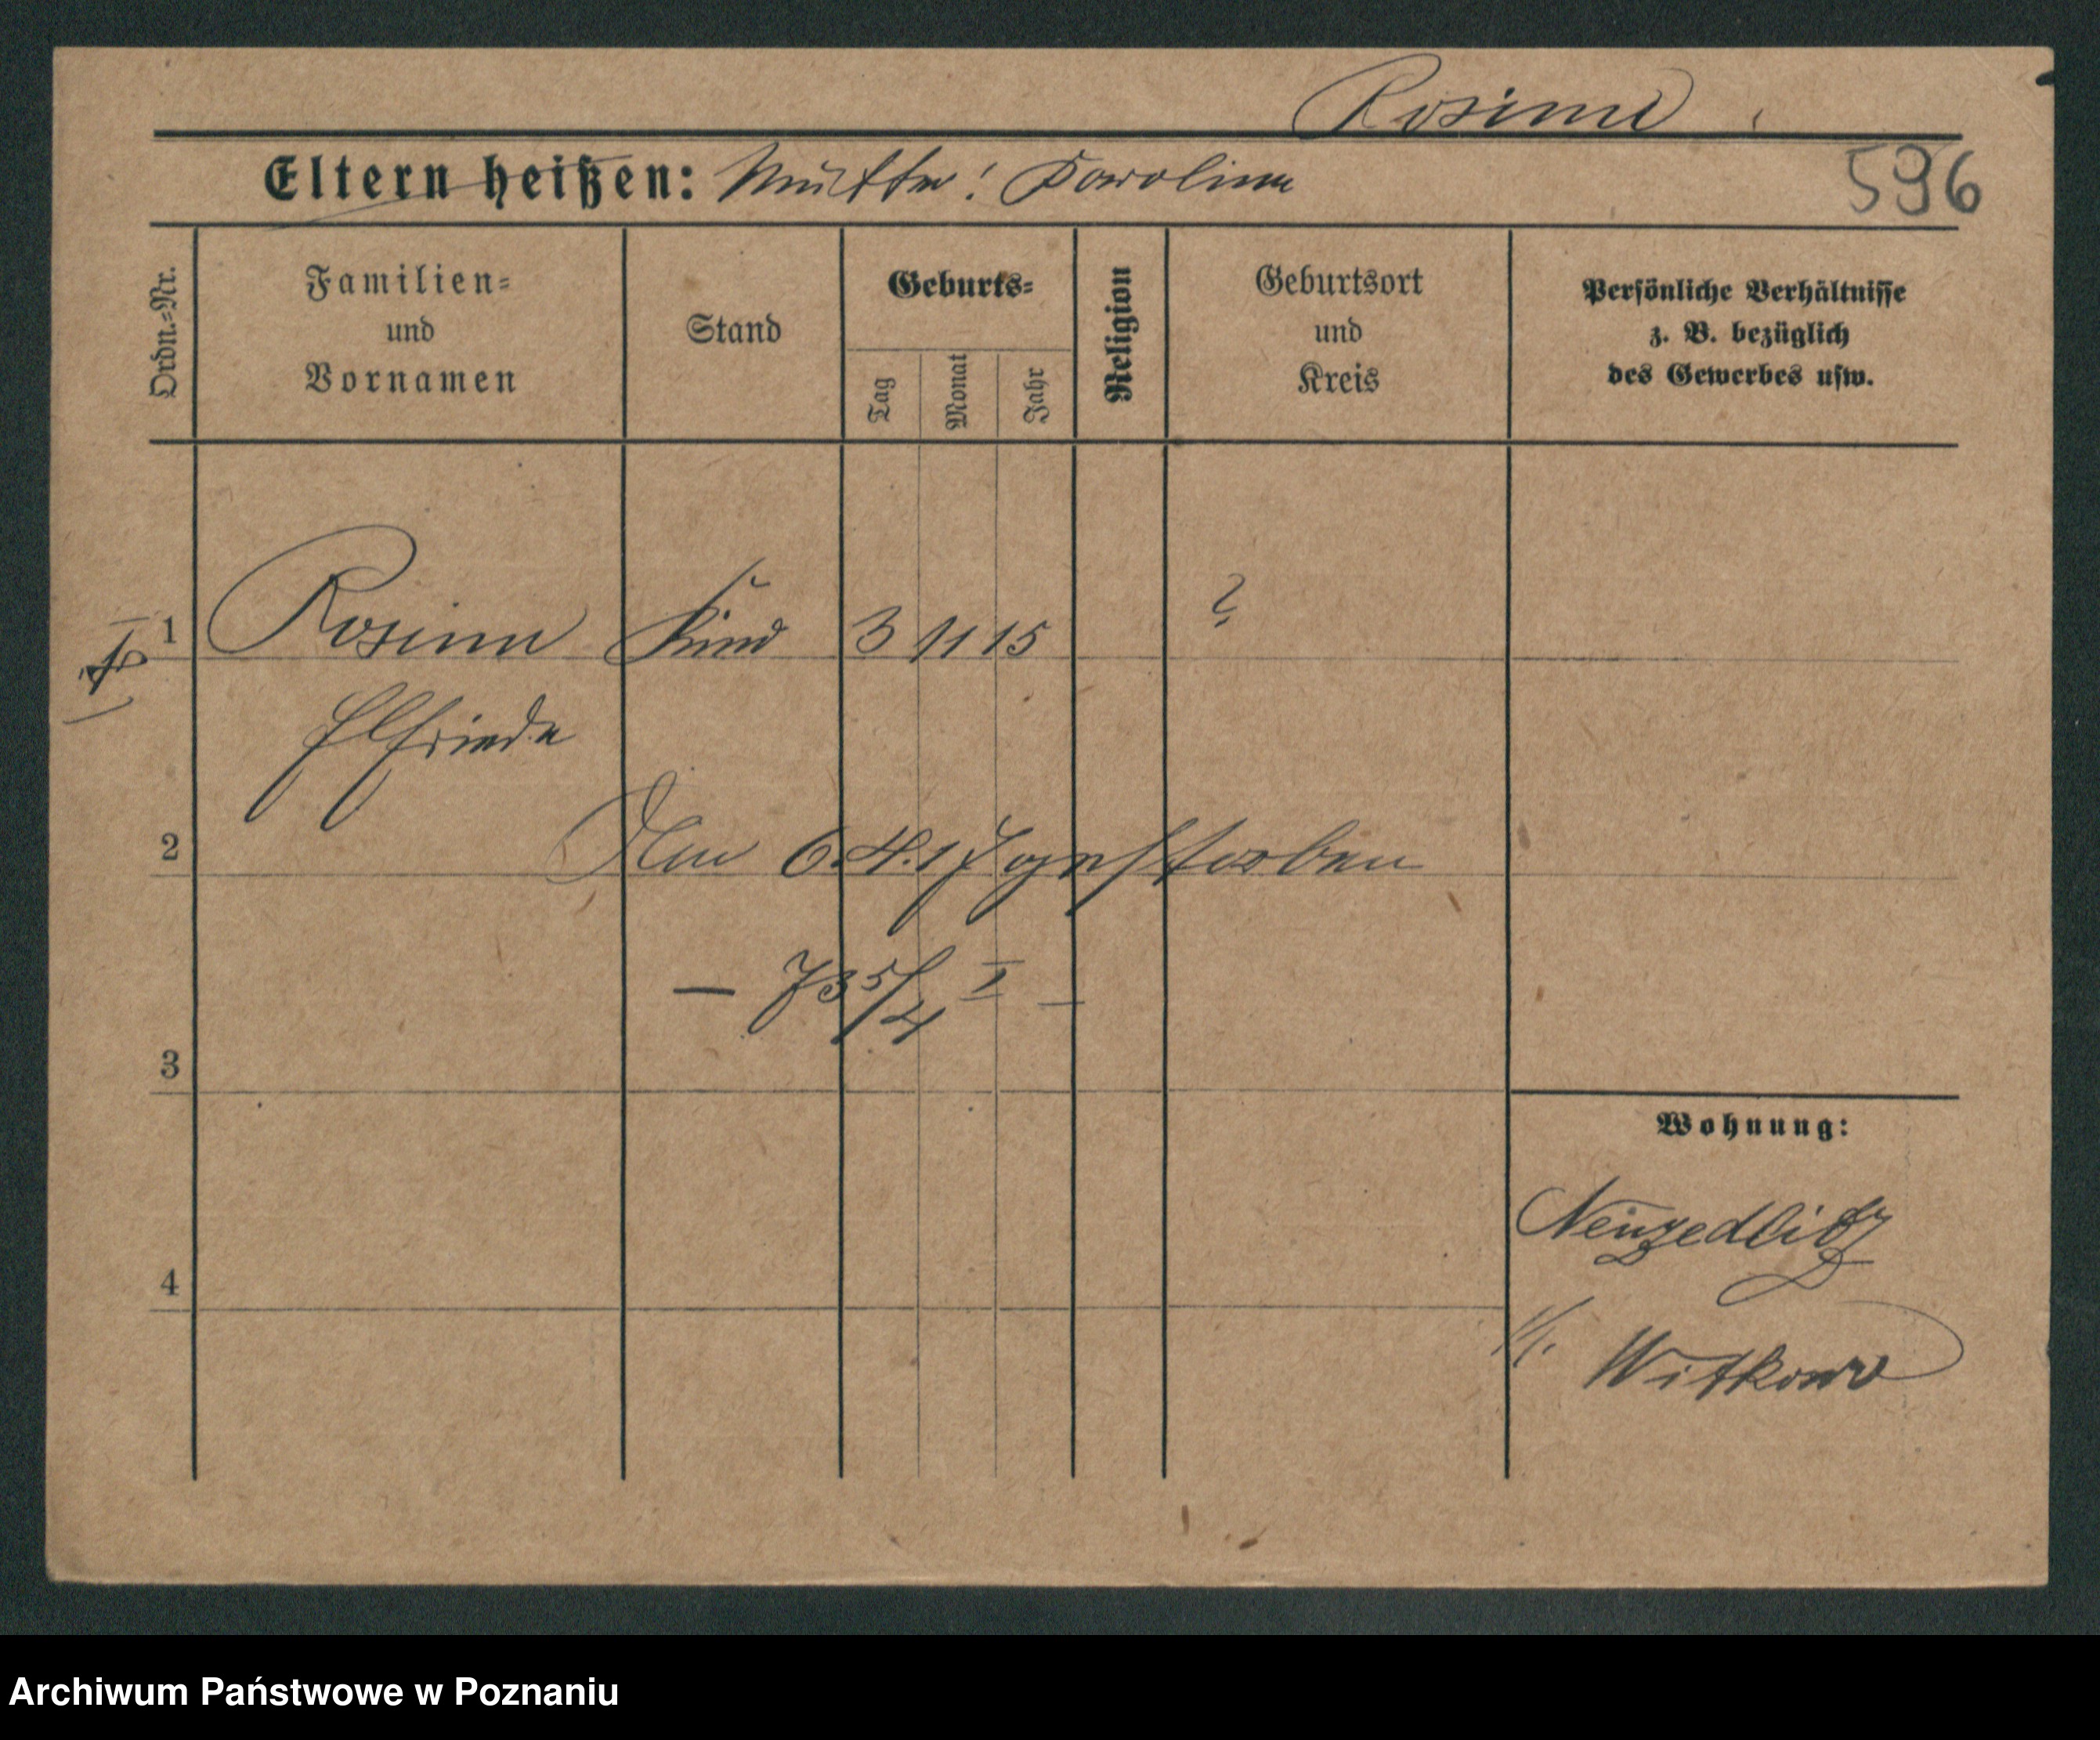 Rosinu
Eltern heißen: Mutter: Karolina
596
Ordn.=Nr.
Familien=
und
Vornamen
Stand
Geburts=
Tag
Monat
Jahr
Religion
Geburtsort
und
Kreis
Persönliche Verhältnisse
z. B. bezüglich
des Gewerbes usw.
1 Rosinu Kind 3 11 15 ?
Elfriede
2 Am 6.4.17 gestorben
— 73 5/4 I —
3
Wohnung:
Neuzedlitz
4
b/. Witkowo
Archiwum Państwowe w Poznaniu